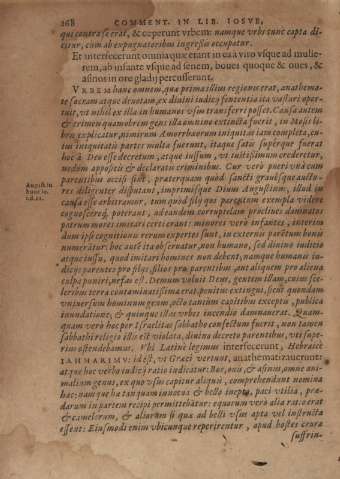 268 COMMENT. IN LIB. IOSVE,
qui contra se erat, & ceperunt vrbem: namque vrbs tunc capta di-
citur, cum ab expugnatoribus ingressu occupatur.
Et interfecerunt omnia quæ erant in ea à viro vsque ad mulie-
rem, ab infante vsque ad senem, boues quoque & oues, &
asinos in ore gladij percusserunt.
VRBEM hanc omnem, quæ prima illius regionis erat, anathema-
te sacram atque deuotam, ex diuini iudicij sententia ita vastari opor-
tuit, vt nihil ex illa in humanos vsus transferri posset. Causa autem
& crimen quamobrem gens illa omnino extincta fuerit, in Mosis li-
bro explicatur, nimirum Amorrhæorum iniquitas iam completa, cu-
ius iniquitatis partes multæ fuerunt, itaque satis superque fuerat
hoc à Deo esse decretum, atque iussum, vt iustissimum crederetur,
nedum appositis & declaratis criminibus. Cur verò pueri vnà cum
parentibus occisi sint, præterquam quod sancti grauesque aucto-
res diligenter disputant, imprimisque Diuus Augustinus, illud in
August. in
hunc lo-
causa esse arbitramur, tum quòd filij qui parentum exempla videre
cognoscereque poterant, ad eandem corruptelam procliues damnatos
patrum mores imitari certi erant: minores verò infantes, interitu
dum ipse cognitionis rerum expertes sunt, in externis parentum bonis
numerãtur: hoc autẽ ita obseruatur, non humano, sed diuino iudicio
atque iussu, quod imitari homines non debent, namque humanis iu-
dicijs parentes pro filijs, filios pro parentibus, aut aliquem pro aliena
culpa puniri, nefas est. Demum voluit Deus, gentem illam, cuius sce-
leribus terra contaminatissima erat, penitus extingui, sicut quondam
vniuersum hominum genus, octo tantùm capitibus exceptis, publica
inundatione, & quinque illas vrbes incendio damnauerat. Quam-
quam verò hoc per Israelitas sabbatho confectum fuerit, non tamen
sabbathi religio illis est violata, diuina decreta parentibus, vti supe-
rius ostendebamus. Vbi Latinè legimus interfecerunt, Hebraicè
IAHHARIMV: id est, vt Græci vertunt, anathematizauerunt:
atque hoc verbo iudicij ratio indicatur: Bos, ouis, & asinus, omne ani-
malium genus, ex quo vsus capitur aliquis, comprehendunt nomina
hæc: namque ha tanquam innocua & bello inepta, paci vtilia, præ-
darum in partem recipi permittebãtur: equorum verò alia ratio erat
& camelorum, & aliorum si quæ ad belli vsus apta vel instructa
essent: Eiusmodi enim vbicunque reperirentur, apud hostes crura
suffrin-